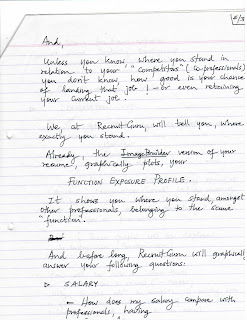 2/3
And,
Unless you know, where you stand in
relation to your "competitors" (co-professionals)
you don't know, how good is your chance
of landing that job! - or even retaining
your current job.
We, at RecruitGuru, will tell you, where
exactly you stand.
Already, the ImageBuilder version of your
resume, graphically plots, your
FUNCTION EXPOSURE PROFILE.
It shows you where you stand amongst
other professionals, belonging to the same
"function".
And before long, RecruitGuru will graphically
answer your following questions:
▷ SALARY
← How does my salary compare with
professionals, having